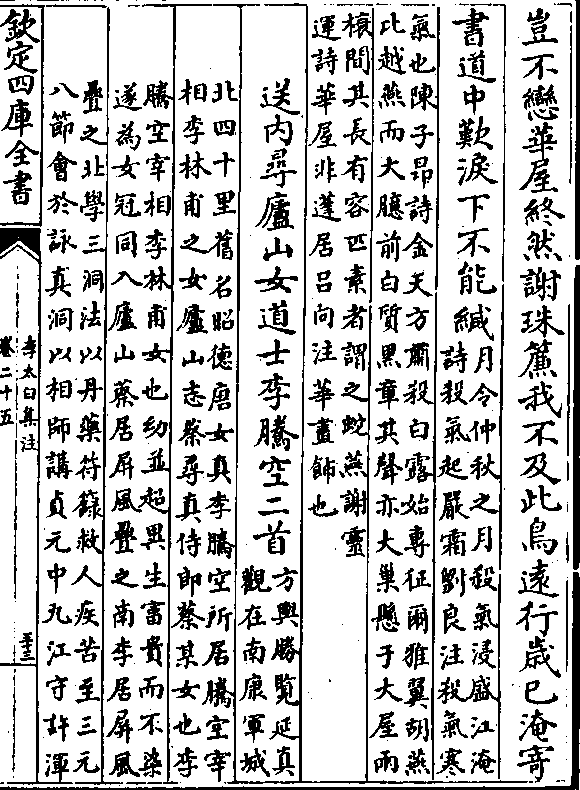 豈不戀華屋終然謝珠簾我不及此鳥遠行歲已淹寄
書道中歎淚下不能緘
月令仲秋之月殺氣浸盛江淹
詩殺氣起嚴霜劉良注殺氣寒
氣也陳子昂詩金天方肅殺白露始專征爾雅翼胡燕
比越燕而大臆前白質黑章其聲亦大巢懸于大屋兩
榱間其長有容匹素者謂之蛇燕謝靈
運詩華屋非蓬居吕向注華畫飾也
送内尋廬山女道士李騰空二首
方輿勝覽延真
觀在南康軍城
北四十里舊名昭德唐女真李騰空所居騰空宰
相李林甫之女廬山志蔡尋真侍郎蔡某女也李
騰空宰相李林甫女也幼並超異生富貴而不染
遂為女冠同入廬山蔡居屏風疊之南李居屏風
疊之北學三洞法以丹藥符籙救人疾苦至三元
八節會於詠真洞以相師講貞元中九江守許渾
欽定四庫全書
李太白集注
卷二十五